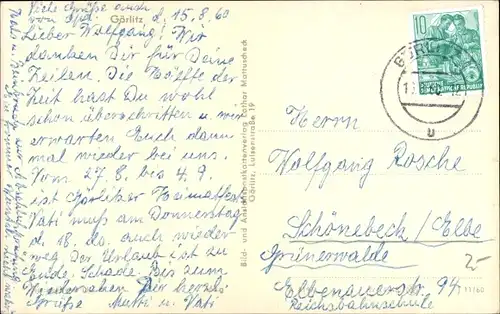 Viele Grüße auch
von
Görlitz, d. 15.8.60
Lieber Wolfgang! Wir
danken Dir für Deine
Zeilen. Die Hälfte der
Zeit hast Du wohl
schon überschritten u. wir
erwarten Euch dann
mal wieder bei uns.
Vom 27.8. bis 4.9.
ist Görlitzer Heimatfest
Vati muß am Donnerstag
d. 18. ds. auch wieder
weg. Der Urlaub ist zu
Ende. Schade. Bis zum
Wiedersehen Dir herzl.
Grüße Mutti u. Vati
Bild- und Ansichtspostkartenverlag Lothar Mattuscheck
Görlitz, Lutherstraße 19
10
DEUTSCHE DEMOKRATISCHE REPUBLIK
GÖRLITZ
u
Herrn
Wolfgang Rosche
Schönebeck/Elbe
Grünerwalde
Elbenauerstr. 94
Reichsbahnschule
11160
2,-